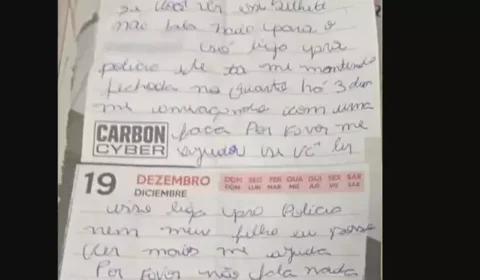 se você ver esse bilhete
não fala nada para o
só liga pra
policia ele ta me mantendo
fechada no quarto há 3 dias
me ameaçando com uma
CARBON faca Por favor me
CYBER ajuda se vc ler
19 DEZEMBRO DOM SEG TER QUA QUI SEX SAB
DICIEMBRE DOM LUN MAR MIE JUE VIE SAB
isso liga pra Policia
nem meu filho eu posso
ver mais me ajuda
Por favor não fala nada